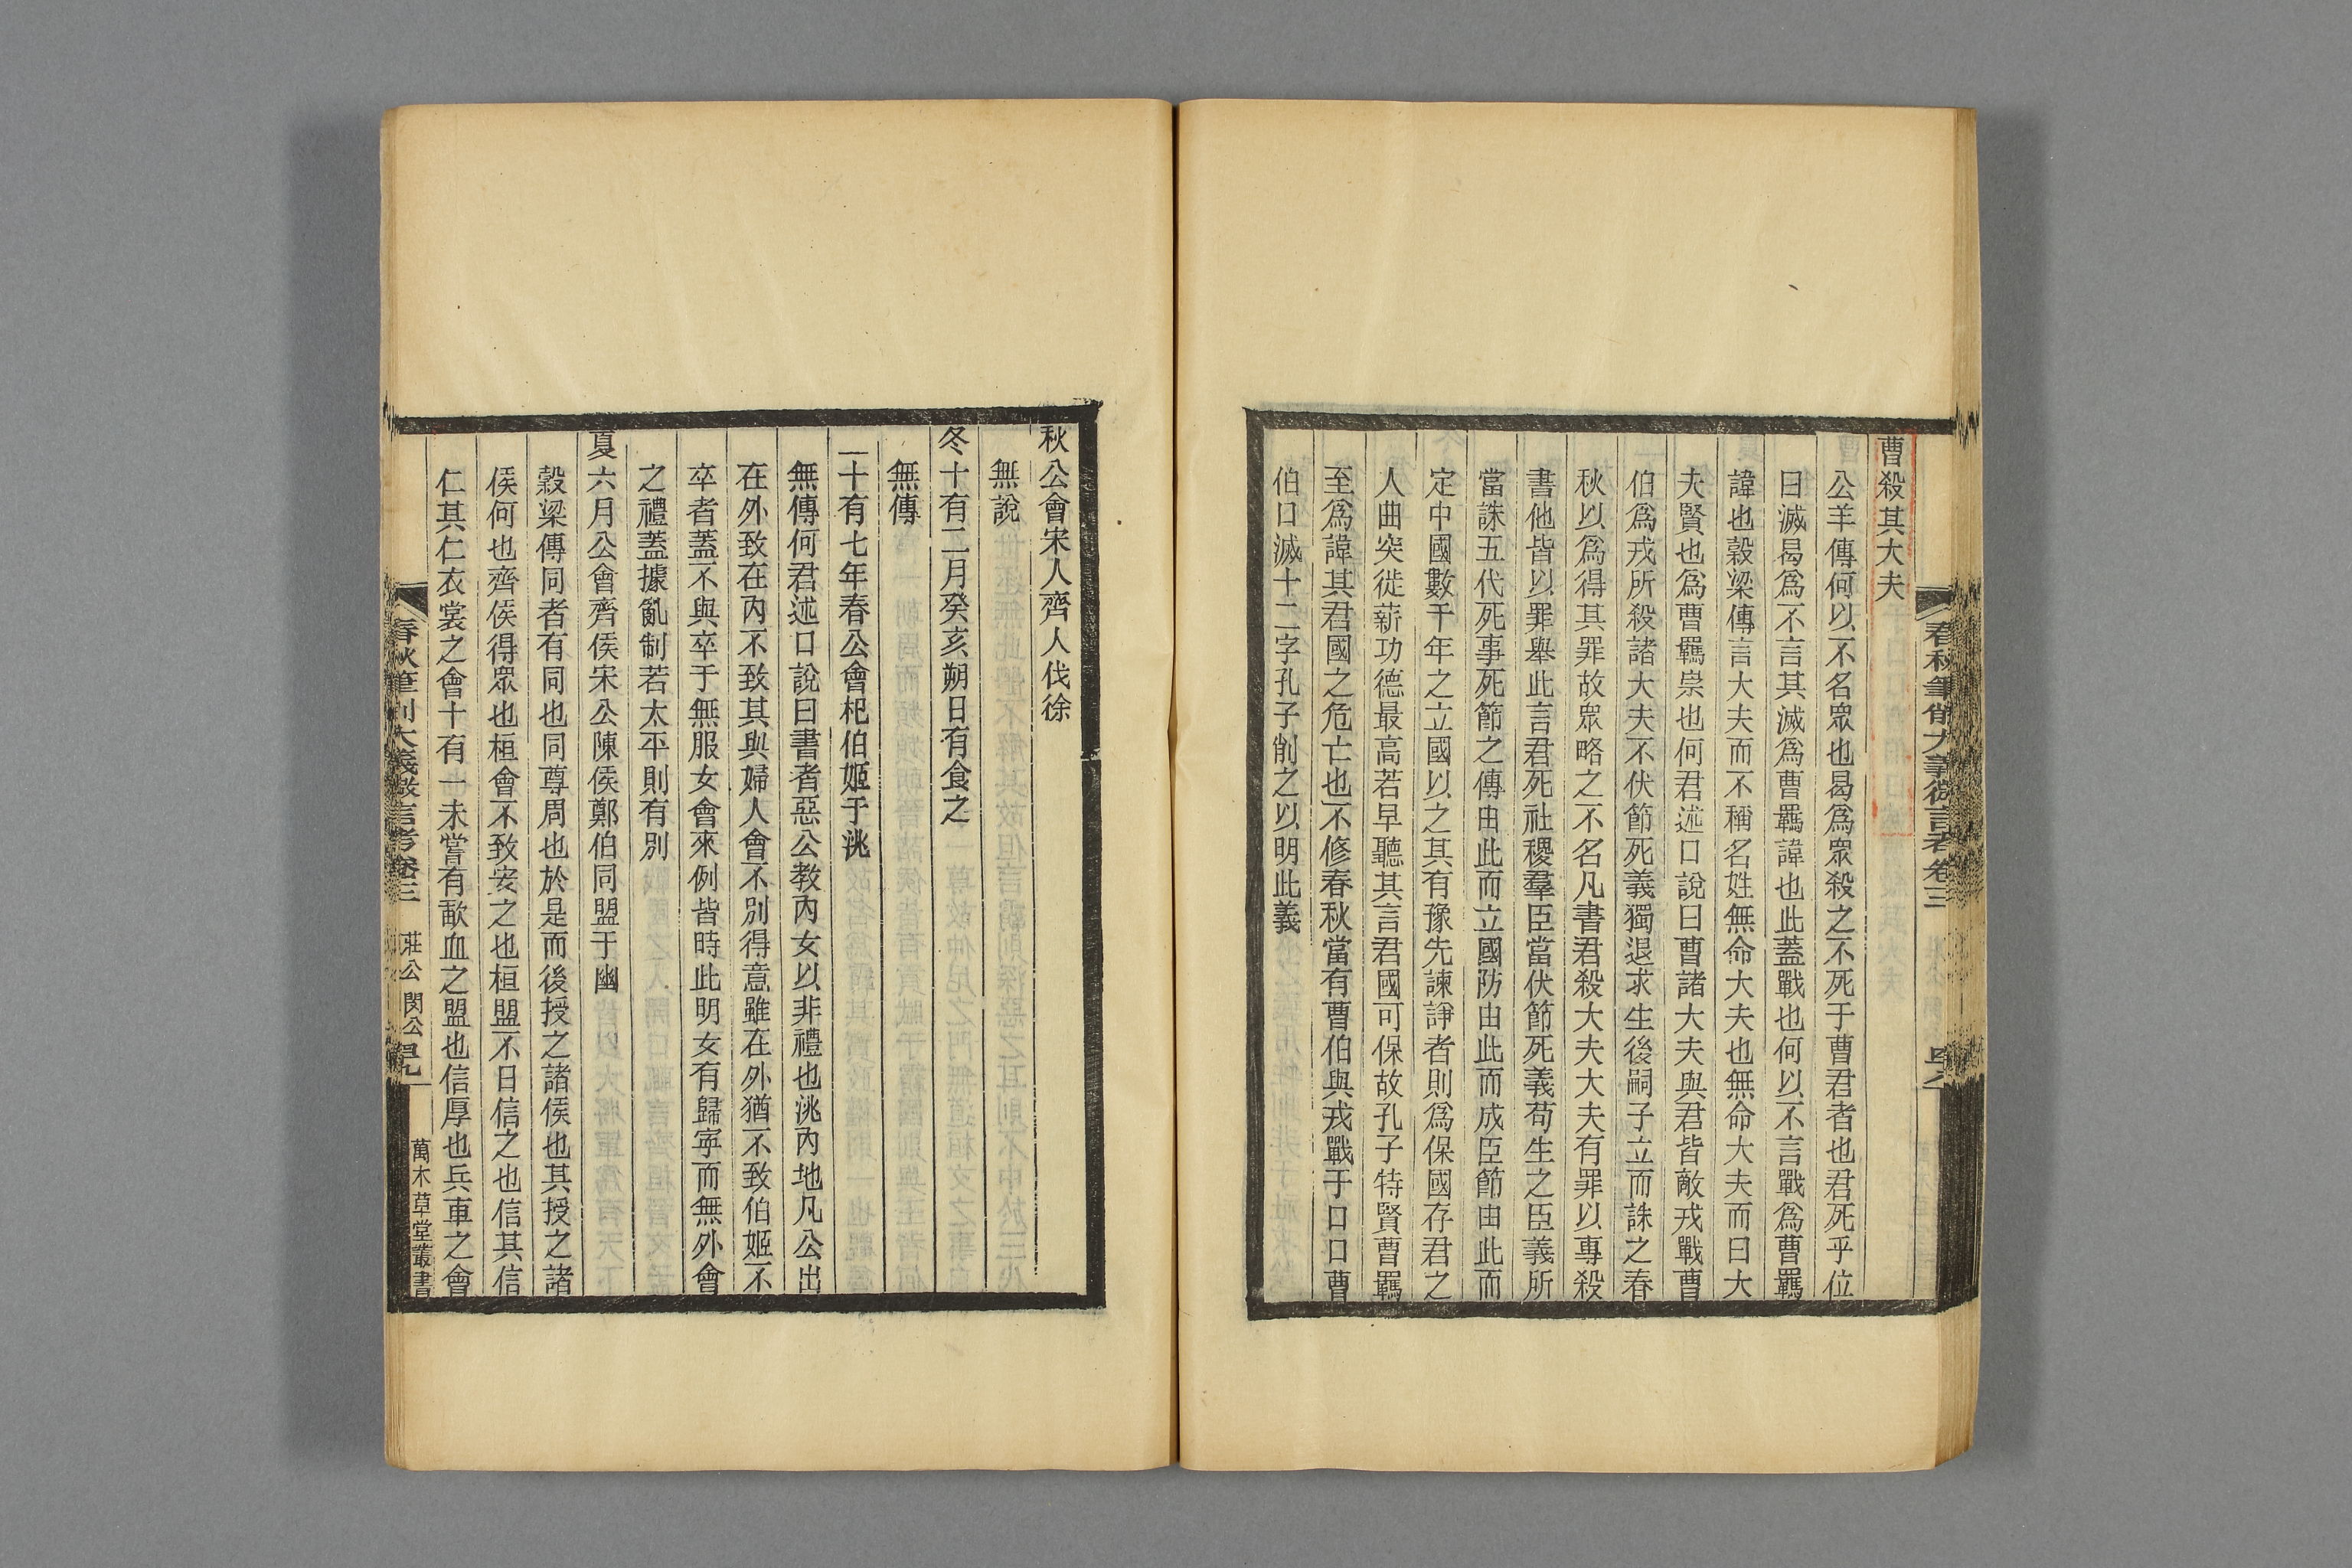 曹殺其大夫
公羊傳何以不名眾也曷為眾殺之不死于曹君者也君死乎位
曰滅曷為不言其滅為曹羈諱也此蓋戰也何以不言戰為曹羈
諱也穀梁傳言大夫而不稱名姓無命大夫也無命大夫而曰大
夫賢也為曹羈崇也何君述口說曰曹諸大夫與君皆敵戎戰曹
伯為戎所殺諸大夫不伏節死義獨退求生後嗣子立而誅之春
秋以為得其罪故眾略之不名凡書君殺大夫大夫有罪以專殺
書他皆以罪舉此言君死社稷羣臣當伏節死義苟生之臣義所
當誅五代死事死節之傳由此而立國防由此而成臣節由此而
定中國數千年之立國以之其有豫先諫諍者則為保國存君之
人曲突徙薪功德最高若早聽其言君國可保故孔子特賢曹羈
至為諱其君國之危亡也不修春秋當有曹伯與戎戰于口口曹
伯口滅十二字孔子削之以明此義
秋公會宋人齊人伐徐
無說
冬十有二月癸亥朔日有食之
無傳
二十有七年春公會杞伯姬于洮
無傳何君述口說曰書者惡公教內女以非禮也洮內地凡公出
在外致在內不致其與婦人會不別得意雖在外猶不致伯姬不
卒者蓋不與卒于無服女會來例皆時此明女有歸寧而無外會
之禮蓋據亂制若太平則有別
夏六月公會齊侯宋公陳侯鄭伯同盟于幽
穀梁傳同者有同也同尊周也於是而後授之諸侯也其授之諸
侯何也齊侯得眾也桓會不致安之也桓盟不日信之也信其信
仁其仁衣裳之會十有一未嘗有歃血之盟也信厚也兵車之會
春秋筆削大義微言考卷三 莊公 閔公
萬木草堂叢書